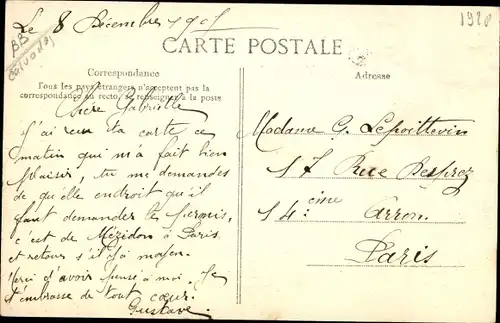 Le 8 Décembre 1905
BB
Calvados
1920
CARTE POSTALE
Correspondance
Tous les pays étrangers n'acceptent pas la
correspondance au recto, se renseigner à la poste
Adresse
Chère Gabrielle
J'ai reçu ta carte ce
matin qui m'a fait bien
plaisir, tu me demandes
de qu'elle endroit qu'il
faut demander le permis,
c'est de Mézidon à Paris
et retour s'il y a moyen.
Merci d'avoir pensé à moi. Je
t'embrasse de tout cœur.
Gustave
Madame G. Lepoittevin
17 Rue Desprez
14: cine Arron.
Paris